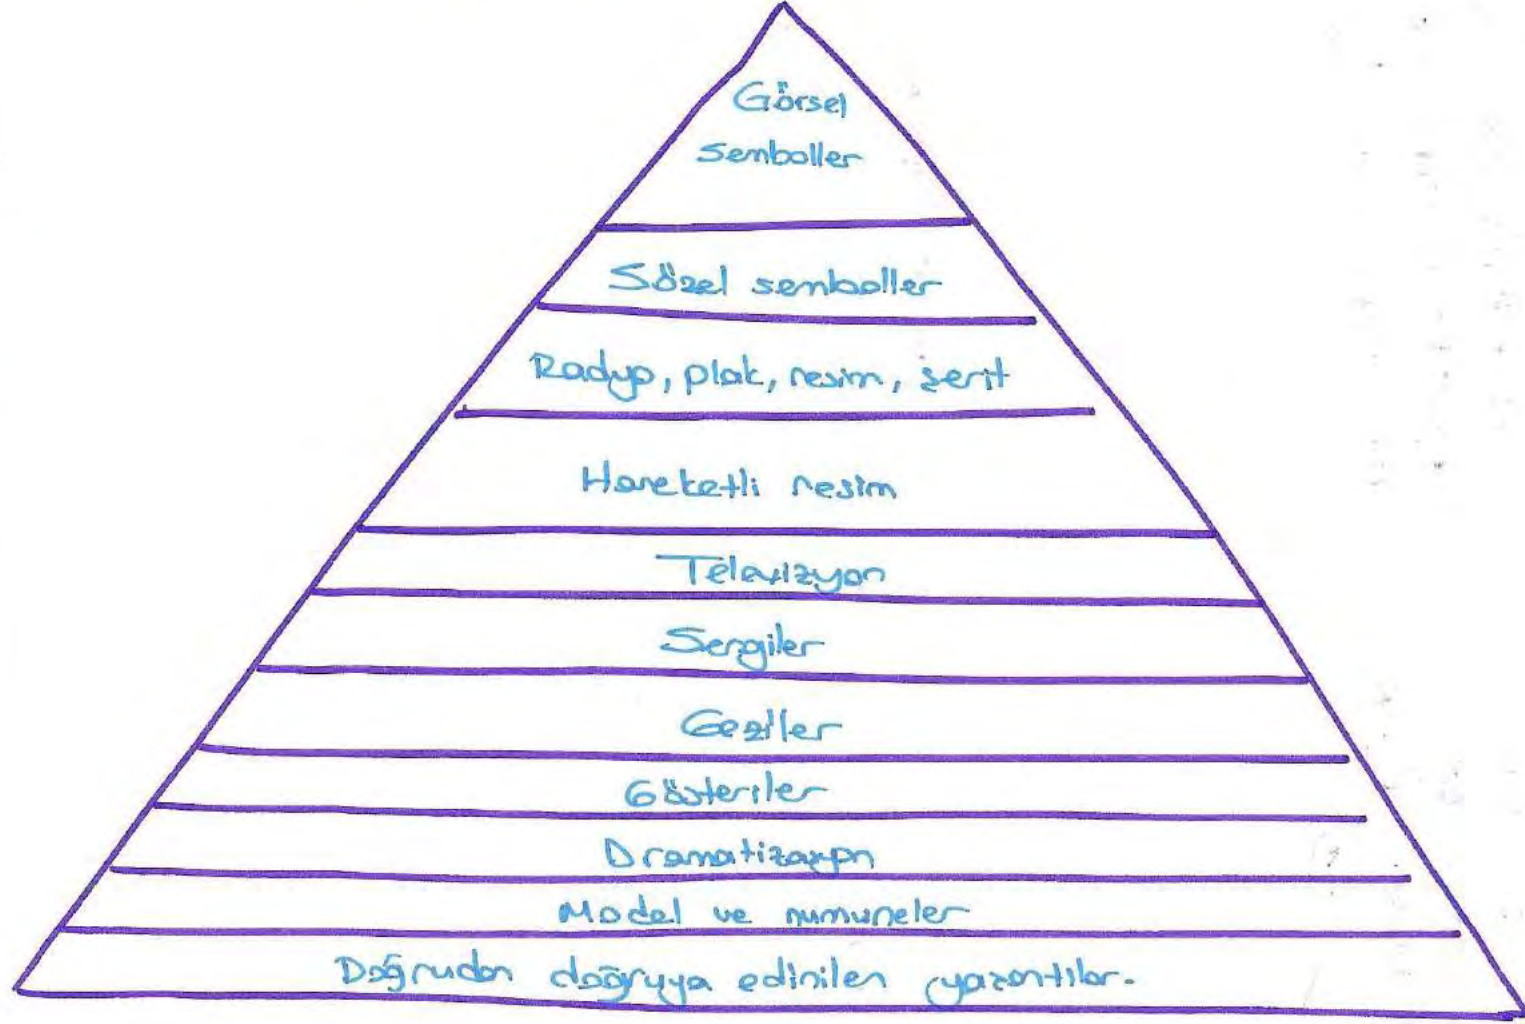 Görsel
semboller
Sözel semboller
Radyo, plak, resim, şerit
Hareketli resim
Televizyon
Sergiler
Geziler
Gösteriler
Dramatizasyon
Model ve numuneler
Doğrudan doğruya edinilen yaşantılar.